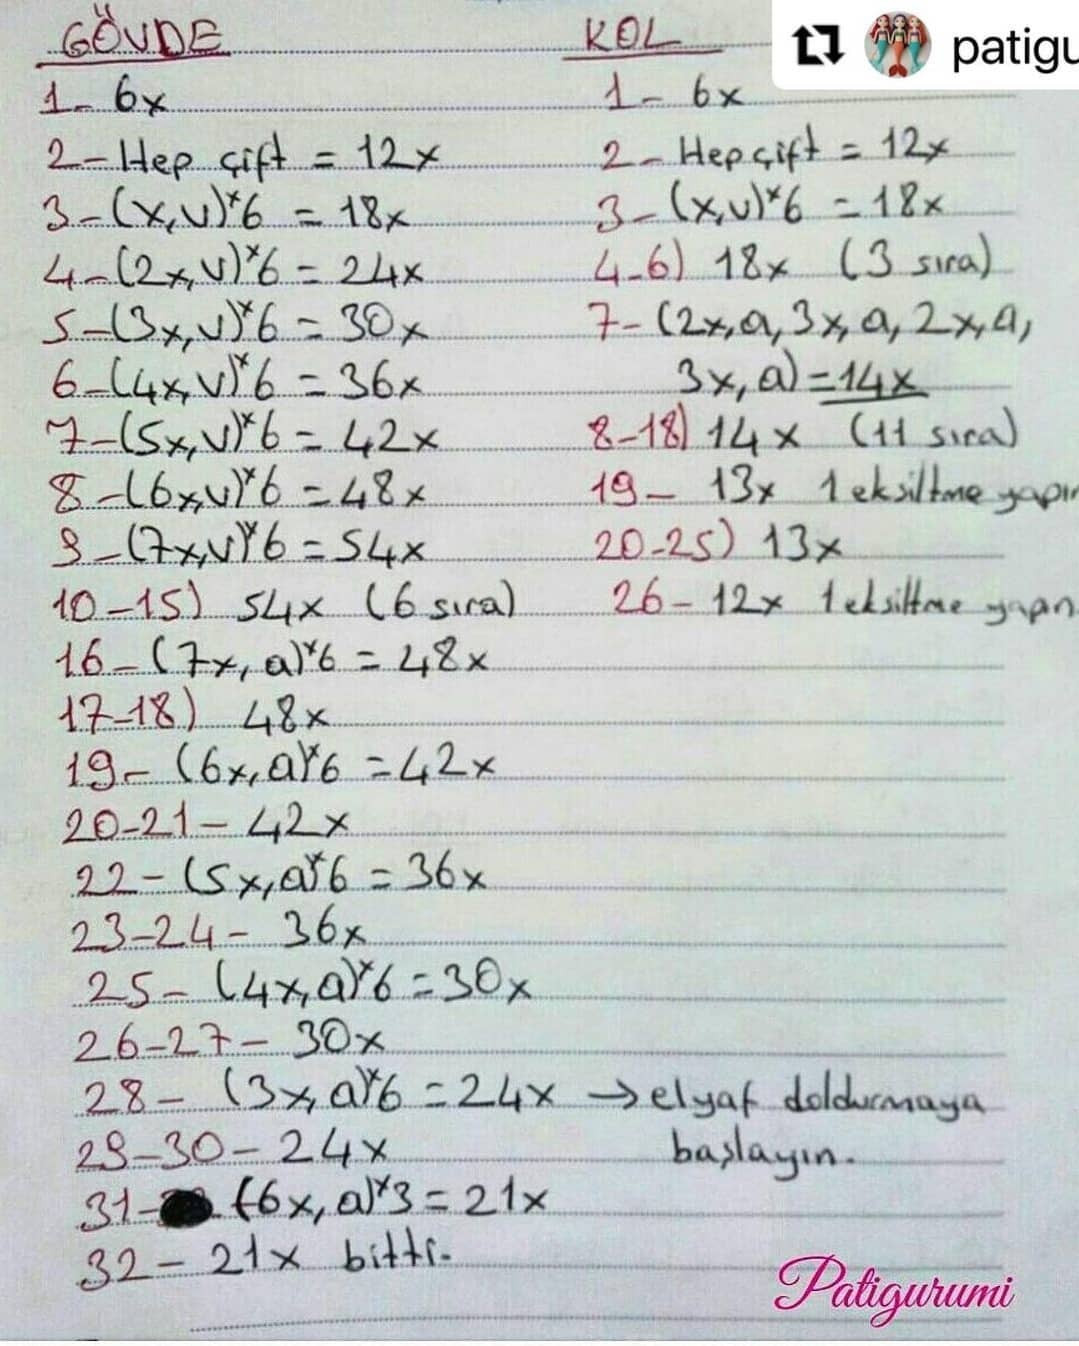 GÖVDE
1- 6x
2- Hep çift = 12x
3- (x,v)*6 = 18x
4- (2x,v)*6 = 24x
5- (3x,v)*6 = 30x
6- (4x,v)*6 = 36x
7- (5x,v)*6 = 42x
8- (6x,v)*6 = 48x
9- (7x,v)*6 = 54x
10-15) 54x (6 sıra)
16- (7x, a)*6 = 48x
17-18) 48x
19- (6x, a)*6 = 42x
20-21- 42x
22- (5x, a)*6 = 36x
23-24- 36x
25- (4x, a)*6 = 30x
26-27- 30x
28- (3x, a)*6 = 24x → elyaf doldurmaya
başlayın.
29-30- 24x
31- (6x, a)*3 = 21x
32- 21x bitti.
KOL
1- 6x
2- Hep çift = 12x
3- (x,v)*6 = 18x
4-6) 18x (3 sıra)
7- (2x, a, 3x, a, 2x, a,
3x, a) = 14x
8-18) 14x (11 sıra)
19- 13x 1 eksiltme yapın
20-25) 13x
26- 12x 1 eksiltme yapın
patigu
Patigurumi